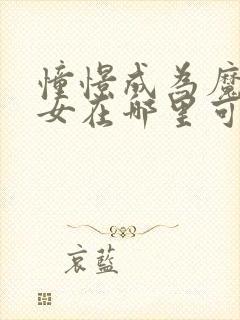 憧憬成为魔
女在哪里可
哀蓝